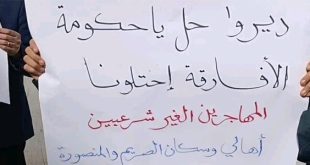 ديروا حل يا حكومة
الأفارقة إحتلونا
المهاجرين الغير شرعيين
أهالي وسكان الصريم والمنصورة